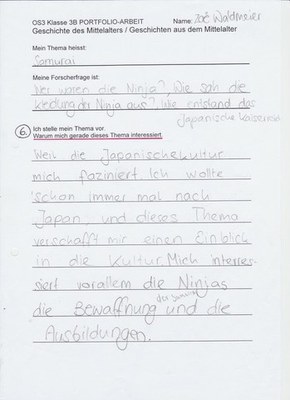 OS3 Klasse 3B PORTFOLIO-ARBEIT Name: Zoé Waldmeier
Geschichte des Mittelalters / Geschichten aus dem Mittelalter
Mein Thema heisst:
Samurai
Meine Forscherfrage ist:
Wer waren die Ninja? Wie sah die
Kleidung der Ninja aus? Wie entstand das
Japanische Kaiserreich
6. Ich stelle mein Thema vor.
Warum mich gerade dieses Thema interessiert.
Weil die Japanischekultur
mich faziniert. Ich wollte
schon immer mal nach
Japan und dieses Thema
verschafft mir einen Einblick
in die Kultur. Mich interres-
siert varallem die Ninjas
die Bewaffnung der Samurai und die
Ausbildungen.